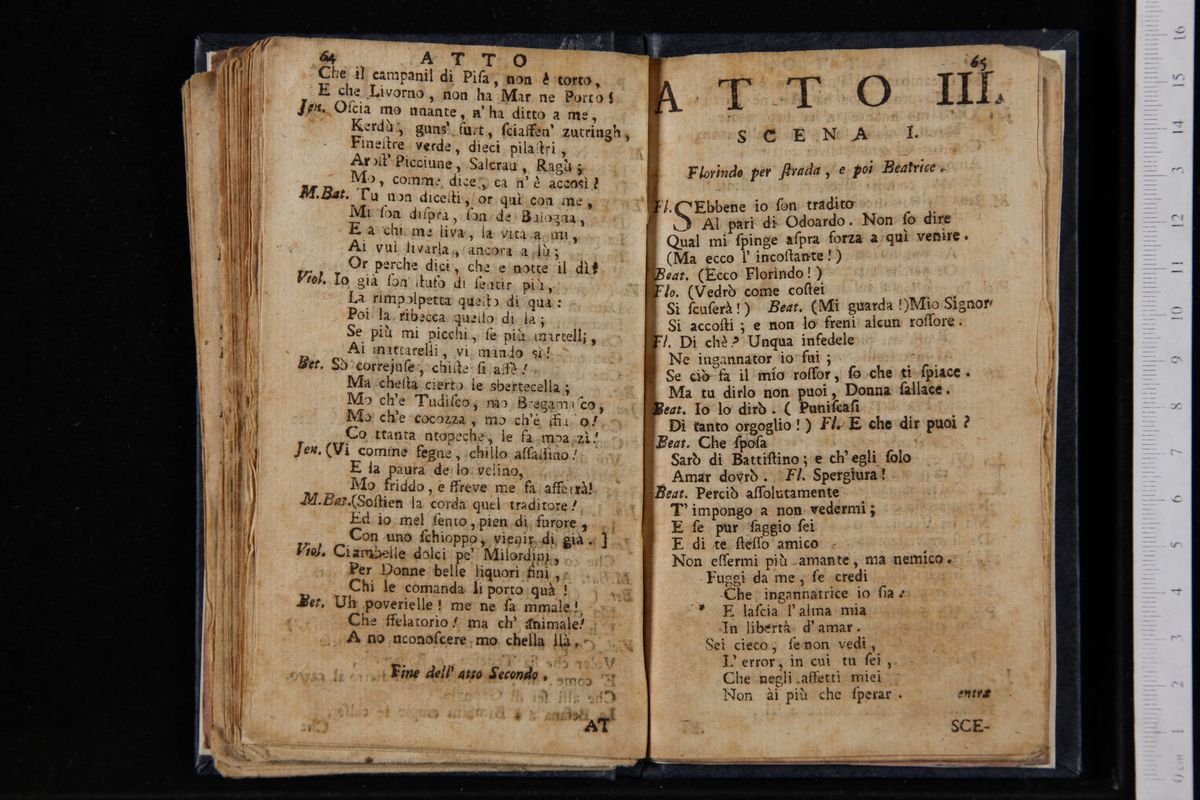 64 ATTO
Che il campanil di Piſa, non è torto,
E che Livorno, non ha Mar ne Porto!
Jen. Oſcia mo nnante, n'ha ditto a me,
Kerdù, guns' furt, ſciaffen' zutringh,
Fineſtre verde, dieci pilaſtri,
Aroſt' Picciune, Salcrau, Ragù;
Mo, comme dice, ca n'è accosì?
M.Bat. Tu non diceſti, or quì con me,
Mi ſon diſprà, ſon de Bulogna,
E a chi me liva, la vita a mi,
Ai vui livarla, ancora a lù;
Or perche dici, che e notte il dì?
Viol. Io già ſon ſtufo di ſentir più,
La rimpolpetta queſto di qua:
Poi la ribecca quello di la;
Se più mi picchi, ſe più martelli,
Ai mattarelli, vi mando sì!
Bet. Sò correjuſe, chiſte ſi affè!
Ma cheſta cierto le sbertecella;
Mo ch'e Tudiſco, mo Bregamaſco,
Mo ch'e cocozza, mo ch'è
Co ttanta ntopeche, le fa mpazì!
Jen. (Vi comme fegne, chillo aſſaſſino!
E la paura de lo velino,
Mo friddo, e ffreve me fa afferrà!
M.Bat.(Soſtien la corda quel traditore!
Ed io mel ſento, pien di furore,
Con uno ſchioppo, vienir di già.]
Viol. Ciambelle dolci pe' Milordini,
Per Donne belle liquori fini,
Chi le comanda li porto quà!
Bet. Uh poverielle! me ne fa mmale!
Che ffelatorio! ma ch' animale!
A no nconoſcere mo chella llà.
Fine dell' atto Secondo.
AT
65
ATTO III.
SCENA I.
Florindo per ſtrada, e poi Beatrice.
Fl. SEbbene io ſon tradito
Al pari di Odoardo. Non ſo dire
Qual mi ſpinge aſpra forza a quì venire.
(Ma ecco l' incoſtante!)
Beat. (Ecco Florindo!)
Flo. (Vedrò come coſtei
Si ſcuſerà!) Beat. (Mi guarda!)Mio Signor
Si accoſti; e non lo freni alcun roſſore.
Fl. Di chè? Unqua infedele
Ne ingannator io fui;
Se ciò fa il mio roſſor, ſo che ti ſpiace.
Ma tu dirlo non puoi, Donna fallace.
Beat. Io lo dirò. (Puniſcaſi
Di tanto orgoglio!) Fl. E che dir puoi?
Beat. Che ſpoſa
Sarò di Battiſtino; e ch' egli ſolo
Amar dovrò. Fl. Spergiura!
Beat. Perciò aſſolutamente
T' impongo a non vedermi;
E ſe pur ſaggio ſei
E di te ſteſſo amico
Non eſſermi più amante, ma nemico.
Fuggi da me, ſe credi
Che ingannatrice io ſia:
E laſcia l' alma mia
In libertà d' amar.
Sei cieco, ſe non vedi,
L' error, in cui tu ſei,
Che negli affetti miei
Non ài più che ſperar. entra
SCE-